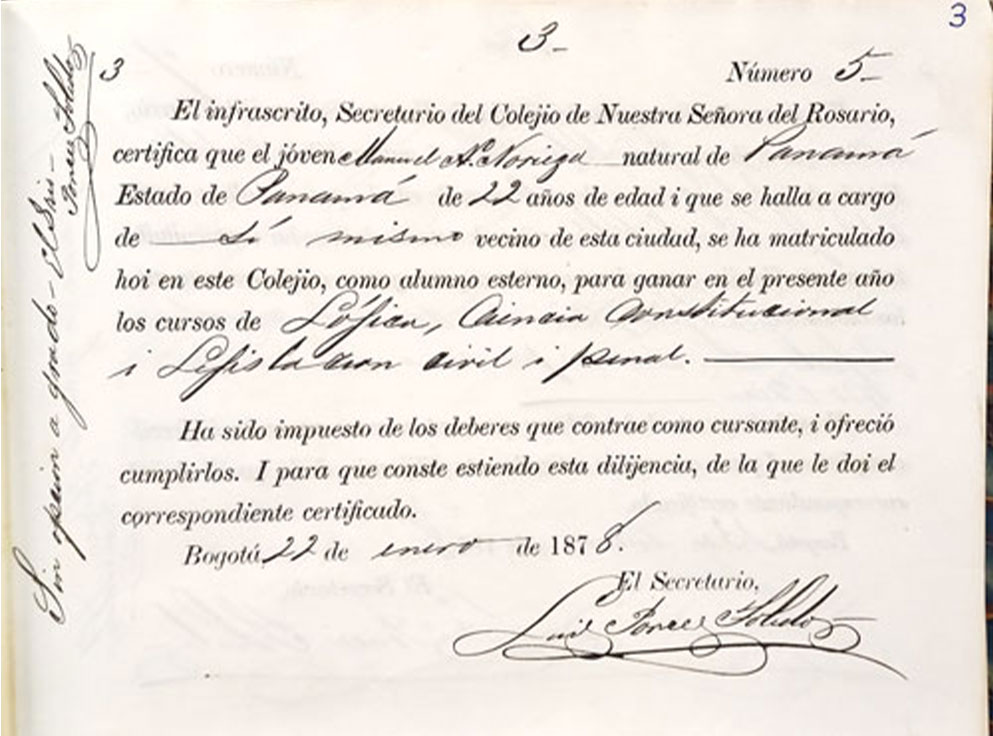 3
3-
3
Número 5-
El infrascrito, Secretario del Colejio de Nuestra Señora del Rosario,
certifica que el jóven Manuel A. Noriega natural de Panamá
Estado de Panamá de 22 años de edad i que se halla a cargo
de sí mismo vecino de esta ciudad, se ha matriculado
hoi en este Colejio, como alumno esterno, para ganar en el presente año
los cursos de Lójica, Ciencia Constitucional
i Lejislacion civil i penal.
Ha sido impuesto de los deberes que contrae como cursante, i ofreció
cumplirlos. I para que conste estiendo esta dilijencia, de la que le doi el
correspondiente certificado.
Bogotá 22 de enero de 1878.
El Secretario,
Luis
Sin opcion a grado - El Srio -